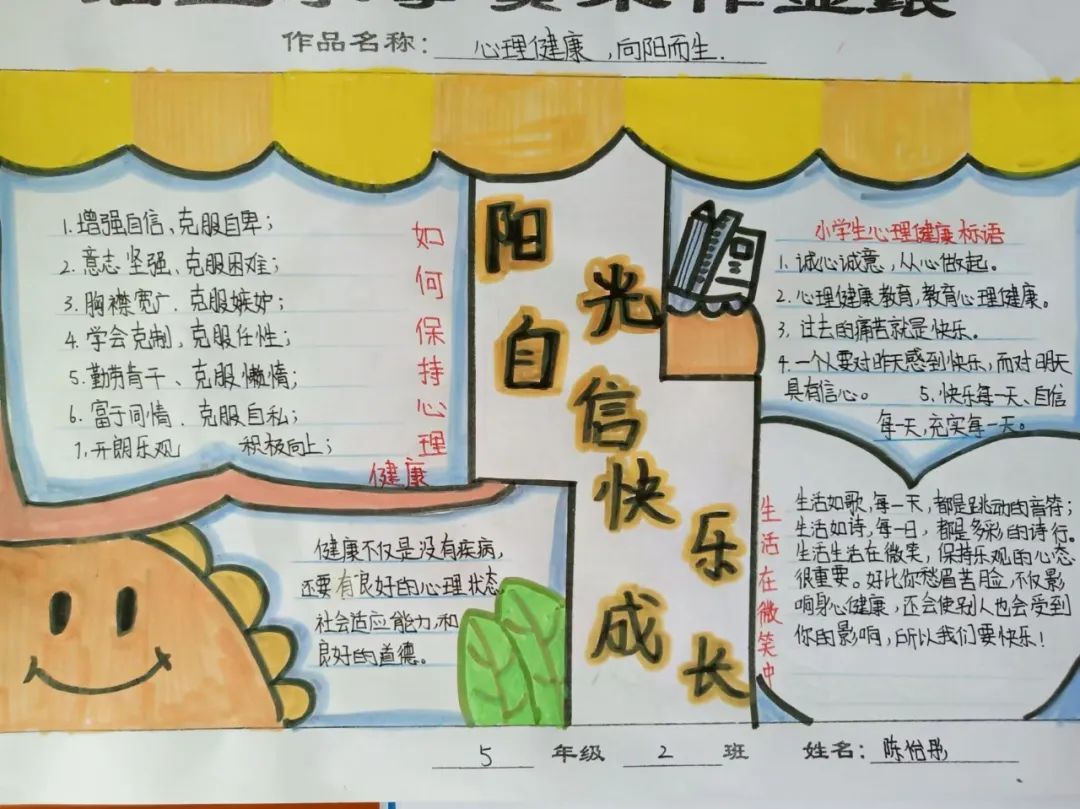 作品名称：心理健康，向阳而生.
1.增强自信、克服自卑；
2.意志坚强、克服困难；
3.胸襟宽广、克服嫉妒；
4.学会克制，克服任性；
5.勤劳肯干、克服懒惰；
6.富于同情、克服自私；
7.开朗乐观 积极向上；
如何保持心理
健康
健康不仅是没有疾病，
还要有良好的心理状态
社会适应能力，和
良好的道德。
阳光
自信
快乐
成长
小学生心理健康标语
1.诚心诚意，从心做起。
2.心理健康教育，教育心理健康。
3.过去的痛苦就是快乐。
4.一个人要对昨天感到快乐，而对明天
具有信心。 5.快乐每一天、自信
每一天，充实每一天。
生活在微笑中
生活如歌，每一天，都是跳动的音符；
生活如诗，每一日，都是多彩的诗行。
生活生活在微笑，保持乐观的心态
很重要。好比你愁眉苦脸，不仅影
响身心健康，还会使别人也会受到
你的影响，所以我们要快乐！
5 年级 2 班 姓名：陈怡彤